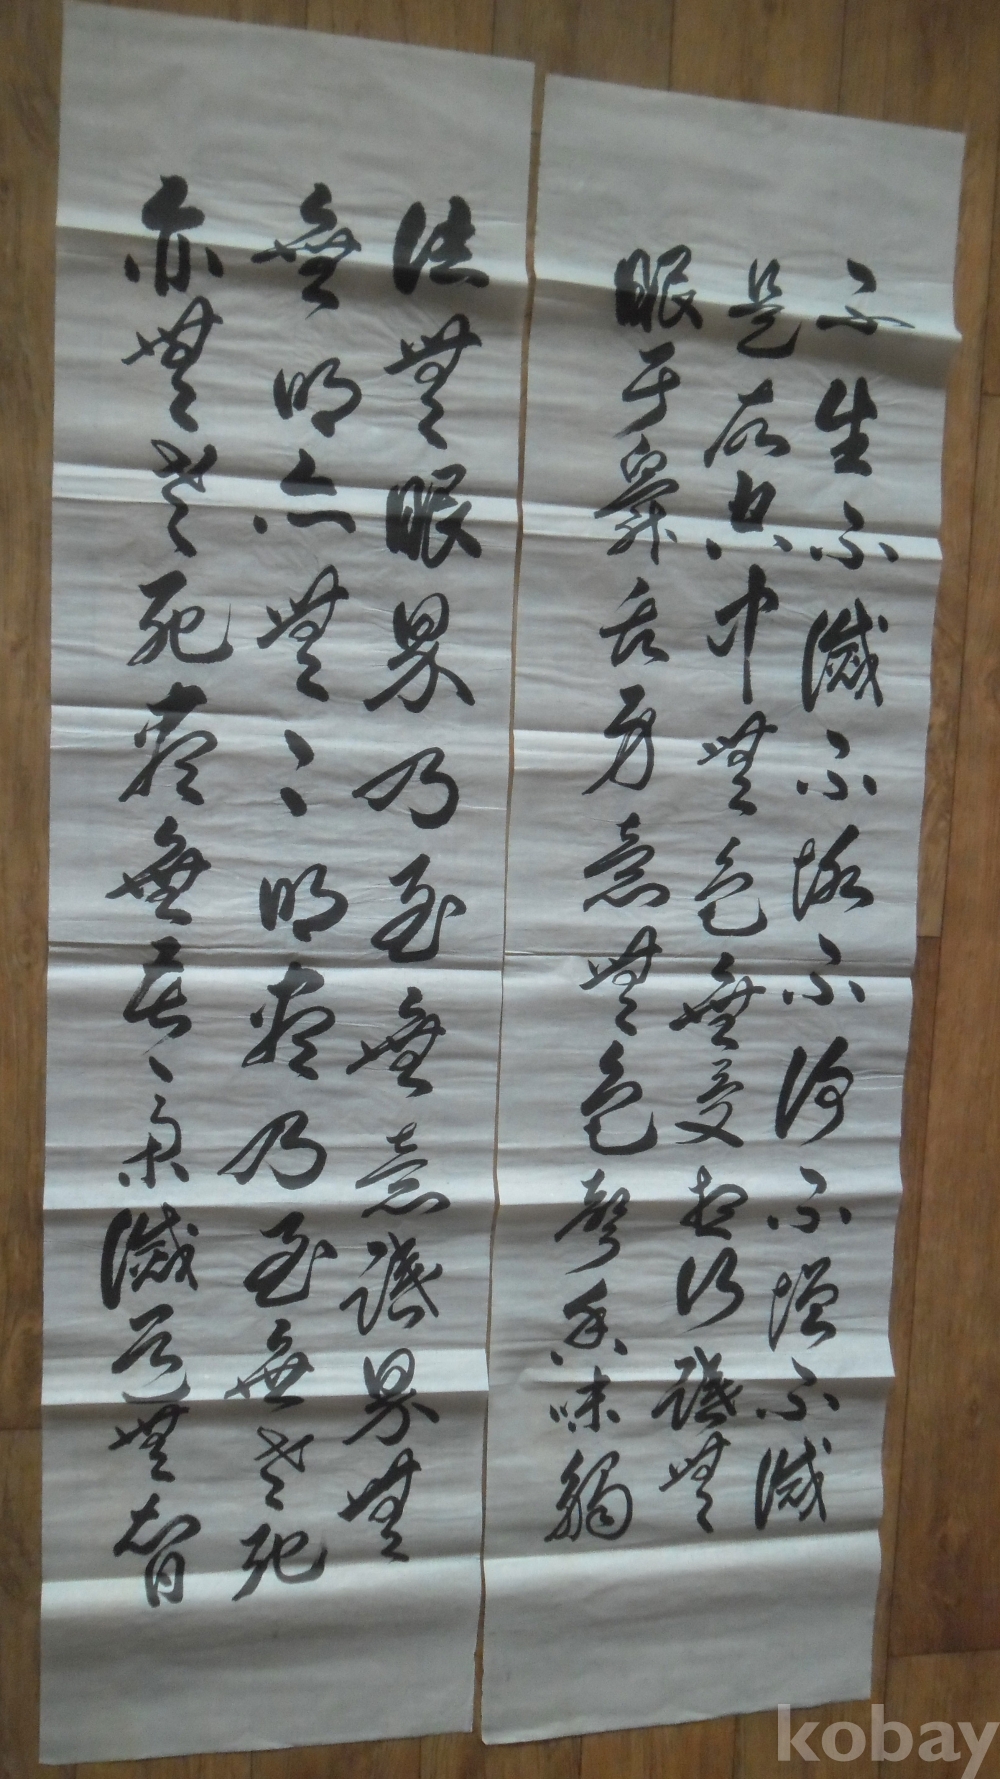 不生不滅不垢不淨不增不減
是故空中無色無受想行識無
眼耳鼻舌身意無色聲香味觸
法無眼界乃至無意識界無
無明亦無〻明盡乃至無老死
亦無老死盡無苦集滅道無智
kobay